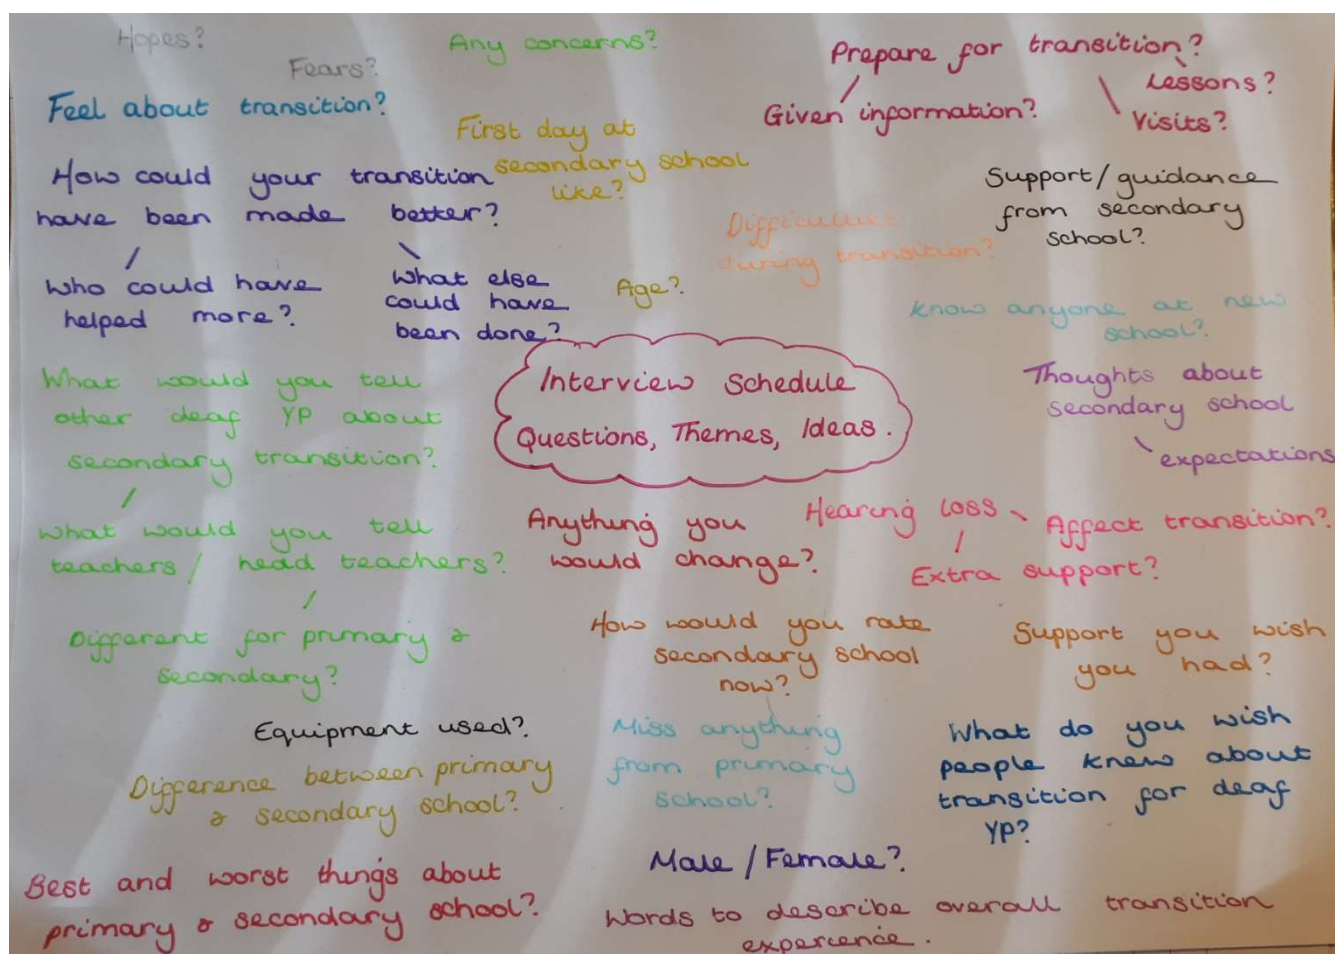 Hopes?
Fears?
Feel about transition?
Any concerns?
First day at
secondary school
like?
Prepare for transition?
Lessons?
Given information?
Visits?
How could your transition
have been made better?
Who could have
helped more?
What else
could have
been done?
Age?
Difficulties
during transition?
Support/guidance
from secondary
school?
Know anyone at new
school?
Interview Schedule
Questions, Themes, Ideas.
Thoughts about
secondary school
expectations
What would you tell
other deaf YP about
secondary transition?
What would you tell
teachers/head teachers?
Different for primary &
secondary?
Anything you
would change?
Hearing loss
Affect transition?
Extra support?
How would you rate
secondary school
now?
Support you wish
you had?
Equipment used?
Difference between primary
& secondary school?
Miss anything
from primary
school?
What do you wish
people knew about
transition for deaf
YP?
Best and worst things about
primary & secondary school?
Male/Female?
Words to describe overall transition
experience.